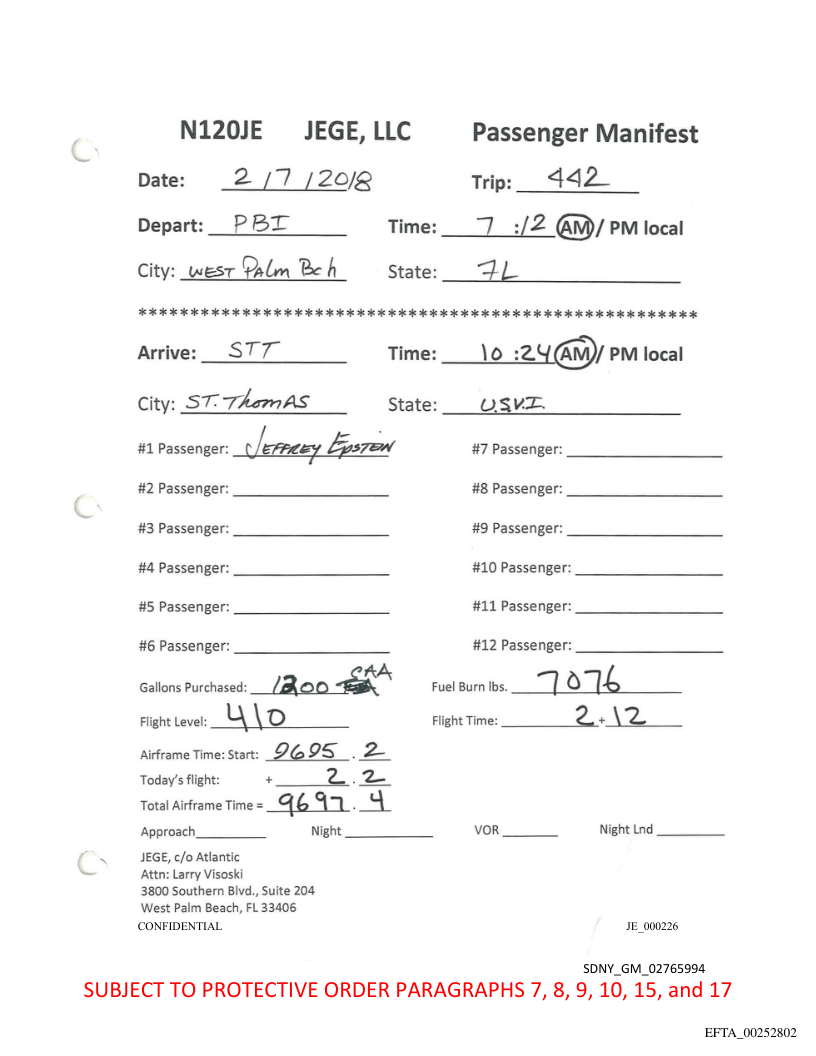 N120JE JEGE, LLC Passenger Manifest
Date: 2 / 7 / 2018 Trip: 442
Depart: PBI Time: 7 :12 AM / PM local
City: WEST PALM Bch State: FL
******************************************************
Arrive: STT Time: 10 :24 AM / PM local
City: ST. THOMAS State: U.S.V.I.
#1 Passenger: JEFFREY EPSTEIN #7 Passenger:
#2 Passenger: #8 Passenger:
#3 Passenger: #9 Passenger:
#4 Passenger: #10 Passenger:
#5 Passenger: #11 Passenger:
#6 Passenger: #12 Passenger:
Gallons Purchased: 1200 CAA Fuel Burn lbs. 7076
Flight Level: 410 Flight Time: 2 + 12
Airframe Time: Start: 9695 . 2
Today's flight: + 2 . 2
Total Airframe Time = 9697 . 4
Approach Night VOR Night Lnd
JEGE, c/o Atlantic
Attn: Larry Visoski
3800 Southern Blvd., Suite 204
West Palm Beach, FL 33406
CONFIDENTIAL JE_000226
SDNY_GM_02765994
SUBJECT TO PROTECTIVE ORDER PARAGRAPHS 7, 8, 9, 10, 15, and 17
EFTA_00252802